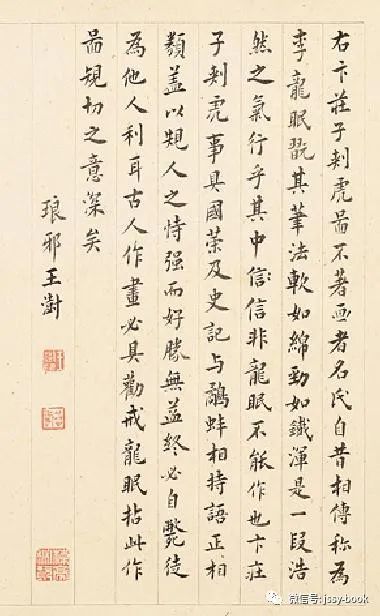 右卞莊子刺虎啚不著画者名氏自昔相傳称為
李龍眠翫其筆法軟如綿勁如鐵渾是一段浩
然之氣行乎其中信信非龍眠不能作也卞莊
子刺虎事具國策及史記与鷸蚌相持語正相
類盖以規人之恃强而好勝無益終必自斃徒
為他人利耳古人作畫必具勸戒龍眠拈此作
啚規切之意深矣
琅邪王澍
微信号: jssy-book